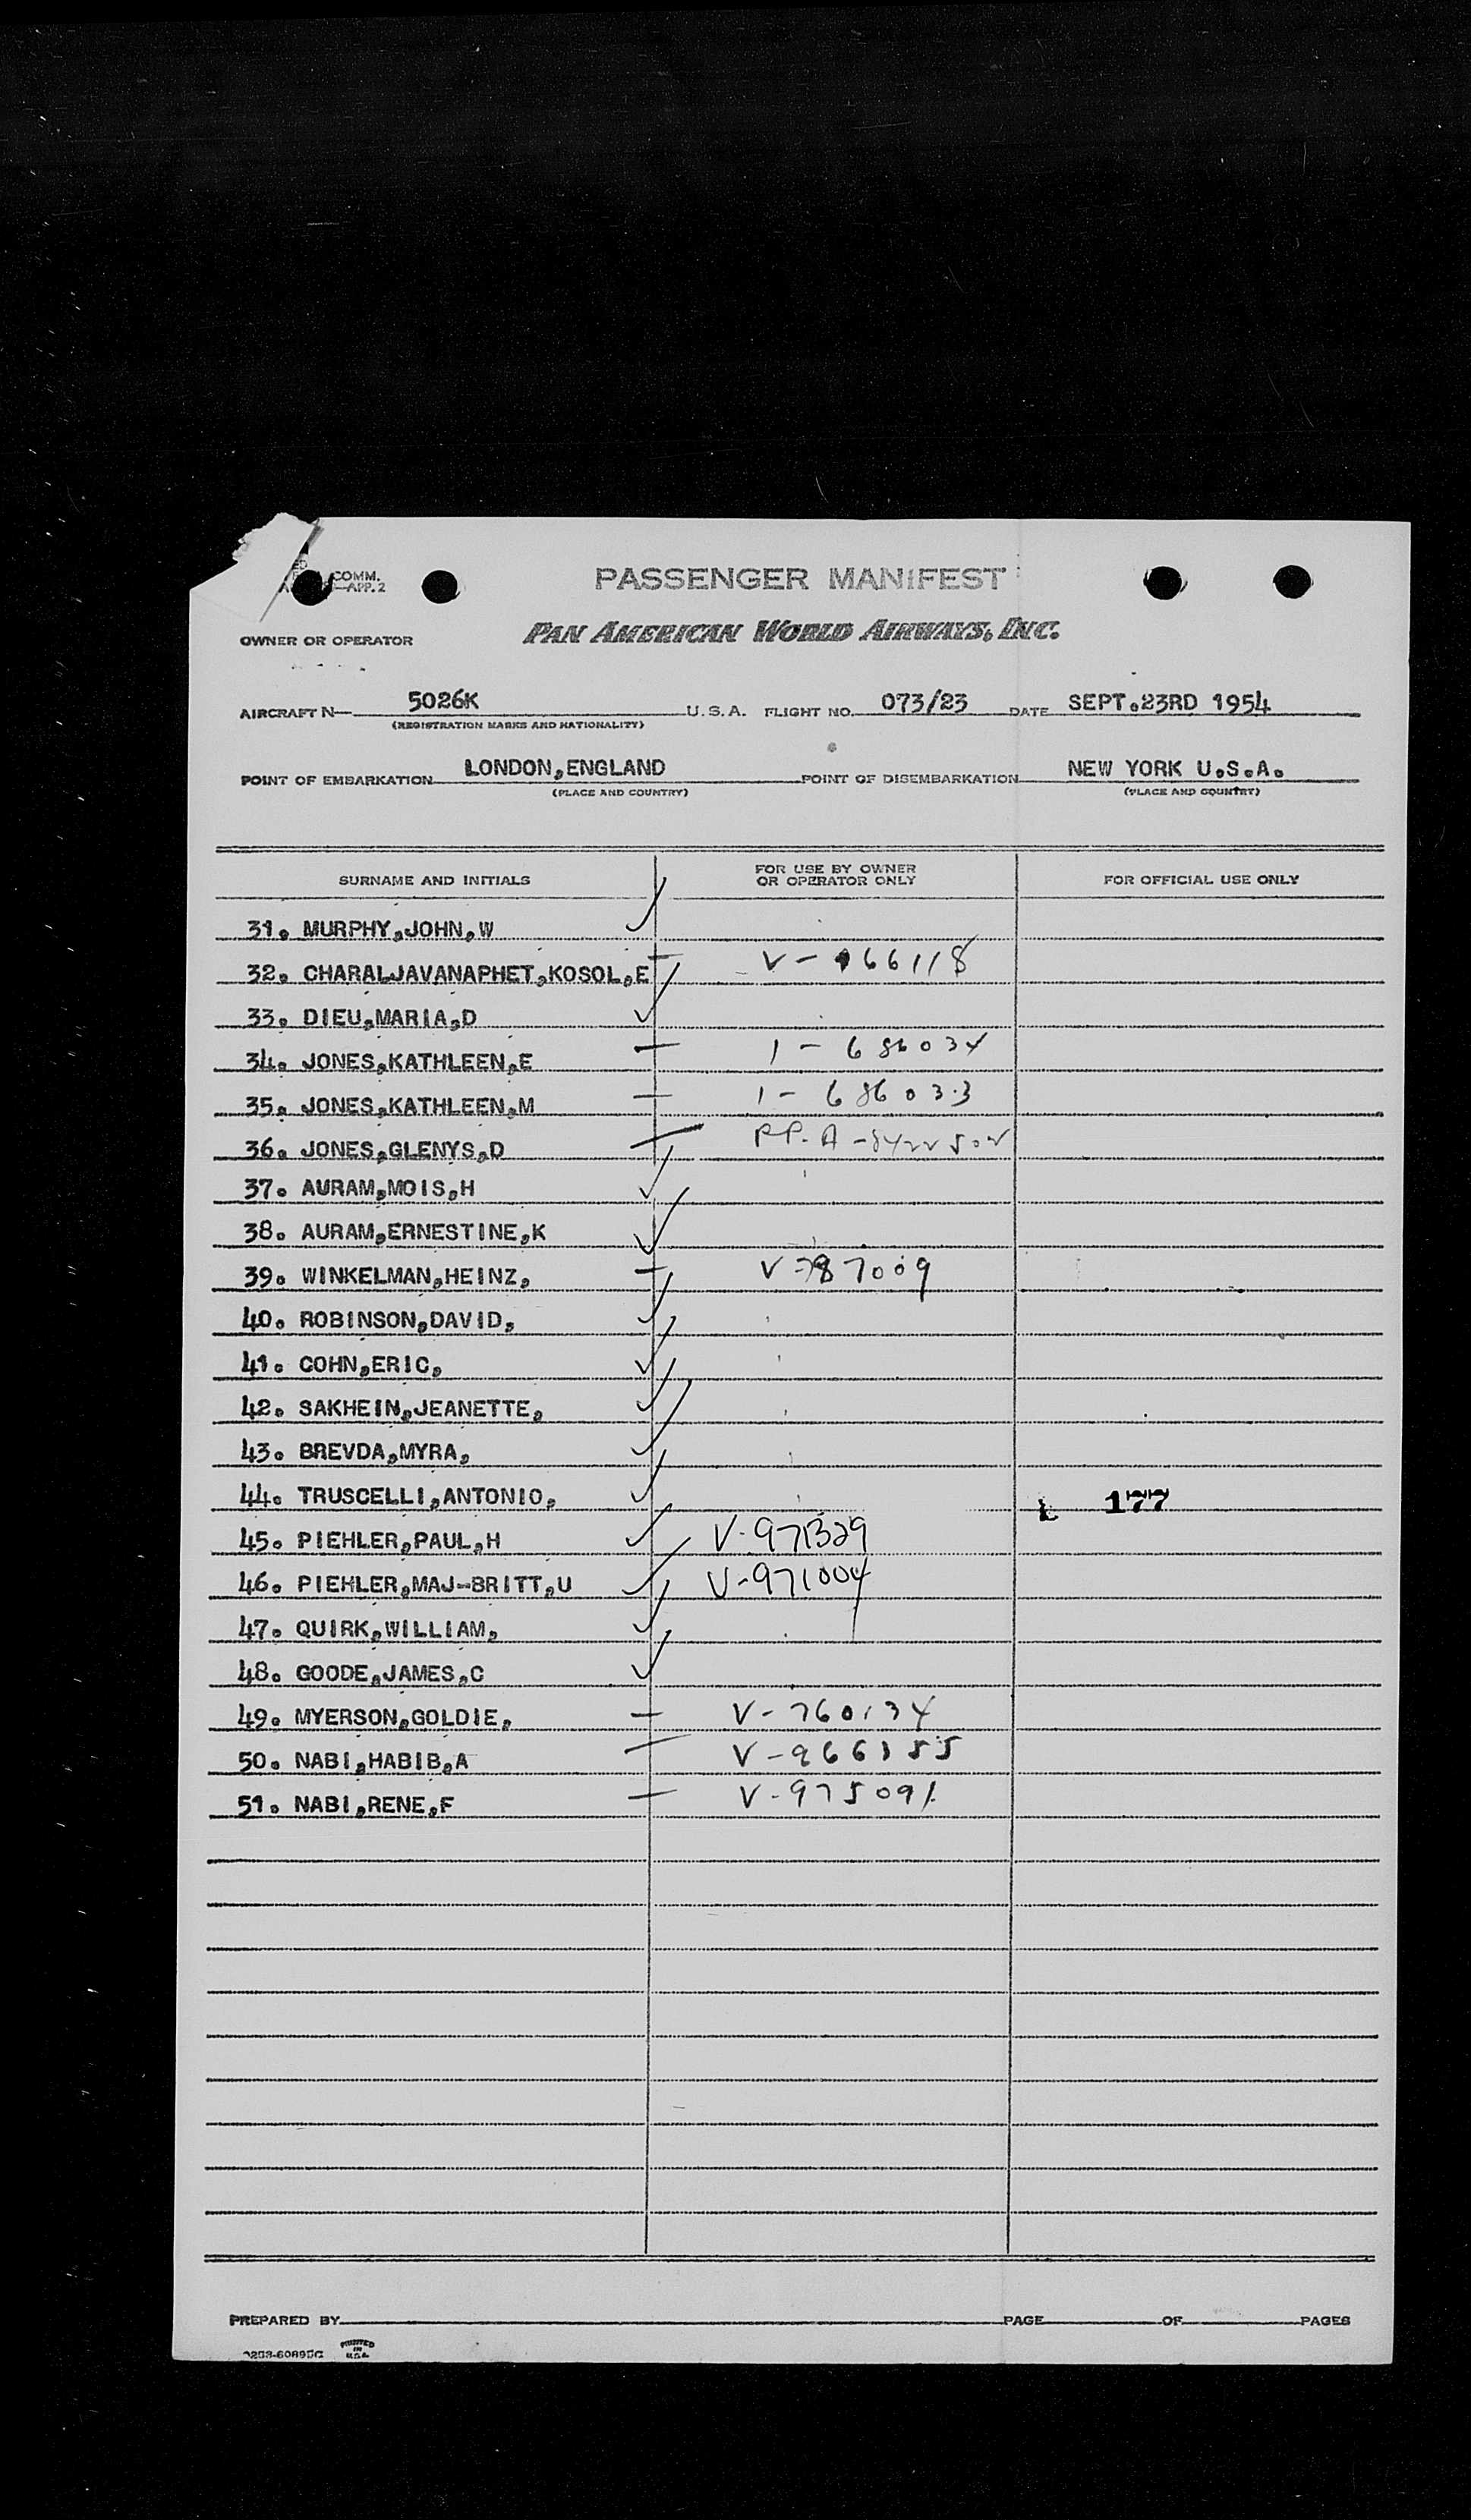 COMM.
APP.2
PASSENGER MANIFEST
OWNER OR OPERATOR
PAN AMERICAN WORLD AIRWAYS, INC.
AIRCRAFT N— 5026K U.S.A. FLIGHT NO. 073/23 DATE SEPT.23RD 1954
(REGISTRATION MARKS AND NATIONALITY)
POINT OF EMBARKATION LONDON,ENGLAND POINT OF DISEMBARKATION NEW YORK U.S.A.
(PLACE AND COUNTRY) (PLACE AND COUNTRY)
SURNAME AND INITIALS FOR USE BY OWNER OR OPERATOR ONLY FOR OFFICIAL USE ONLY
31. MURPHY,JOHN,W ✓
32. CHARALJAVANAPHET,KOSOL,E — V-966118
33. DIEU,MARIA,D ✓
34. JONES,KATHLEEN,E — 1-686034
35. JONES,KATHLEEN,M — 1-686033
36. JONES,GLENYS,D — PP-A-
37. AURAM,MOIS,H ✓
38. AURAM,ERNESTINE,K ✓
39. WINKELMAN,HEINZ, —
40. ROBINSON,DAVID, ✓
41. COHN,ERIC, ✓
42. SAKHEIN,JEANETTE, ✓
43. BREVDA,MYRA, ✓
44. TRUSCELLI,ANTONIO, ✓ 177
45. PIEHLER,PAUL,H ✓ V-971329
46. PIEHLER,MAJ-BRITT,U ✓ V-971004
47. QUIRK,WILLIAM, ✓
48. GOODE,JAMES,C ✓
49. MYERSON,GOLDIE, — V-760134
50. NABI,HABIB,A — V-966155
51. NABI,RENE,F — V-975091
PREPARED BY PAGE OF PAGES
PRINTED IN U.S.A.